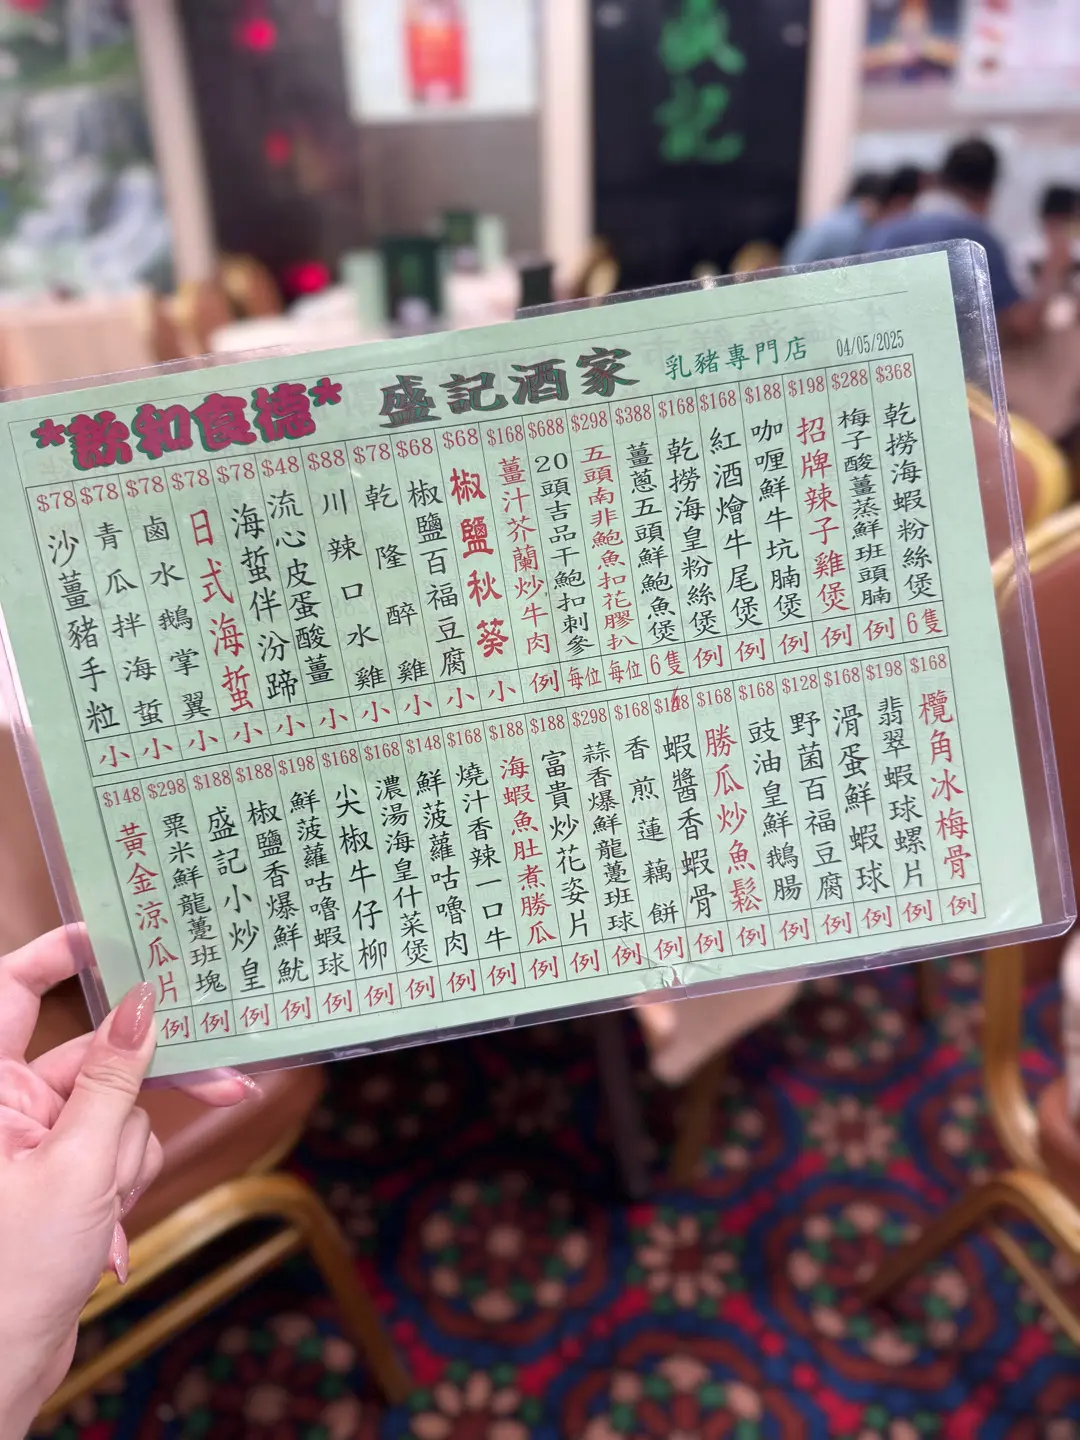 盛記
*飲和食德*
盛記酒家
乳豬專門店
04/05/2025
$368 乾撈海蝦粉絲煲 6隻
$288 梅子酸薑蒸鮮班頭腩 例
$198 招牌辣子雞煲 例
$188 咖喱鮮牛坑腩煲 例
$168 紅酒燴牛尾煲 例
$168 乾撈海皇粉絲煲 例
$388 薑蔥五頭鮮鮑魚煲 6隻
$298 五頭南非鮑魚扣花膠扒 每位
$688 20頭吉品干鮑扣刺參 每位
$168 薑汁芥蘭炒牛肉 例
$68 椒鹽秋葵 小
$68 椒鹽百福豆腐 小
$78 乾隆醉雞 小
$88 川辣口水雞 小
$48 流心皮蛋酸薑 小
$78 海蜇伴汾蹄 小
$78 日式海蜇 小
$78 鹵水鵝掌翼 小
$78 青瓜拌海蜇 小
$78 沙薑豬手粒 小
$168 欖角冰梅骨 例
$198 翡翠蝦球螺片 例
$168 滑蛋鮮蝦球 例
$128 野菌百福豆腐 例
$168 豉油皇鮮鵝腸 例
$168 勝瓜炒魚鬆 例
$168 蝦醬香蝦骨 例
$168 香煎蓮藕餅 例
$298 蒜香爆鮮龍躉班球 例
$188 富貴炒花姿片 例
$188 海蝦魚肚煮勝瓜 例
$168 燒汁香辣一口牛 例
$148 鮮菠蘿咕嚕肉 例
$168 濃湯海皇什菜煲 例
$168 尖椒牛仔柳 例
$198 鮮菠蘿咕嚕蝦球 例
$188 椒鹽香爆鮮魷 例
$188 盛記小炒皇 例
$298 粟米鮮龍躉班塊 例
$148 黃金涼瓜片